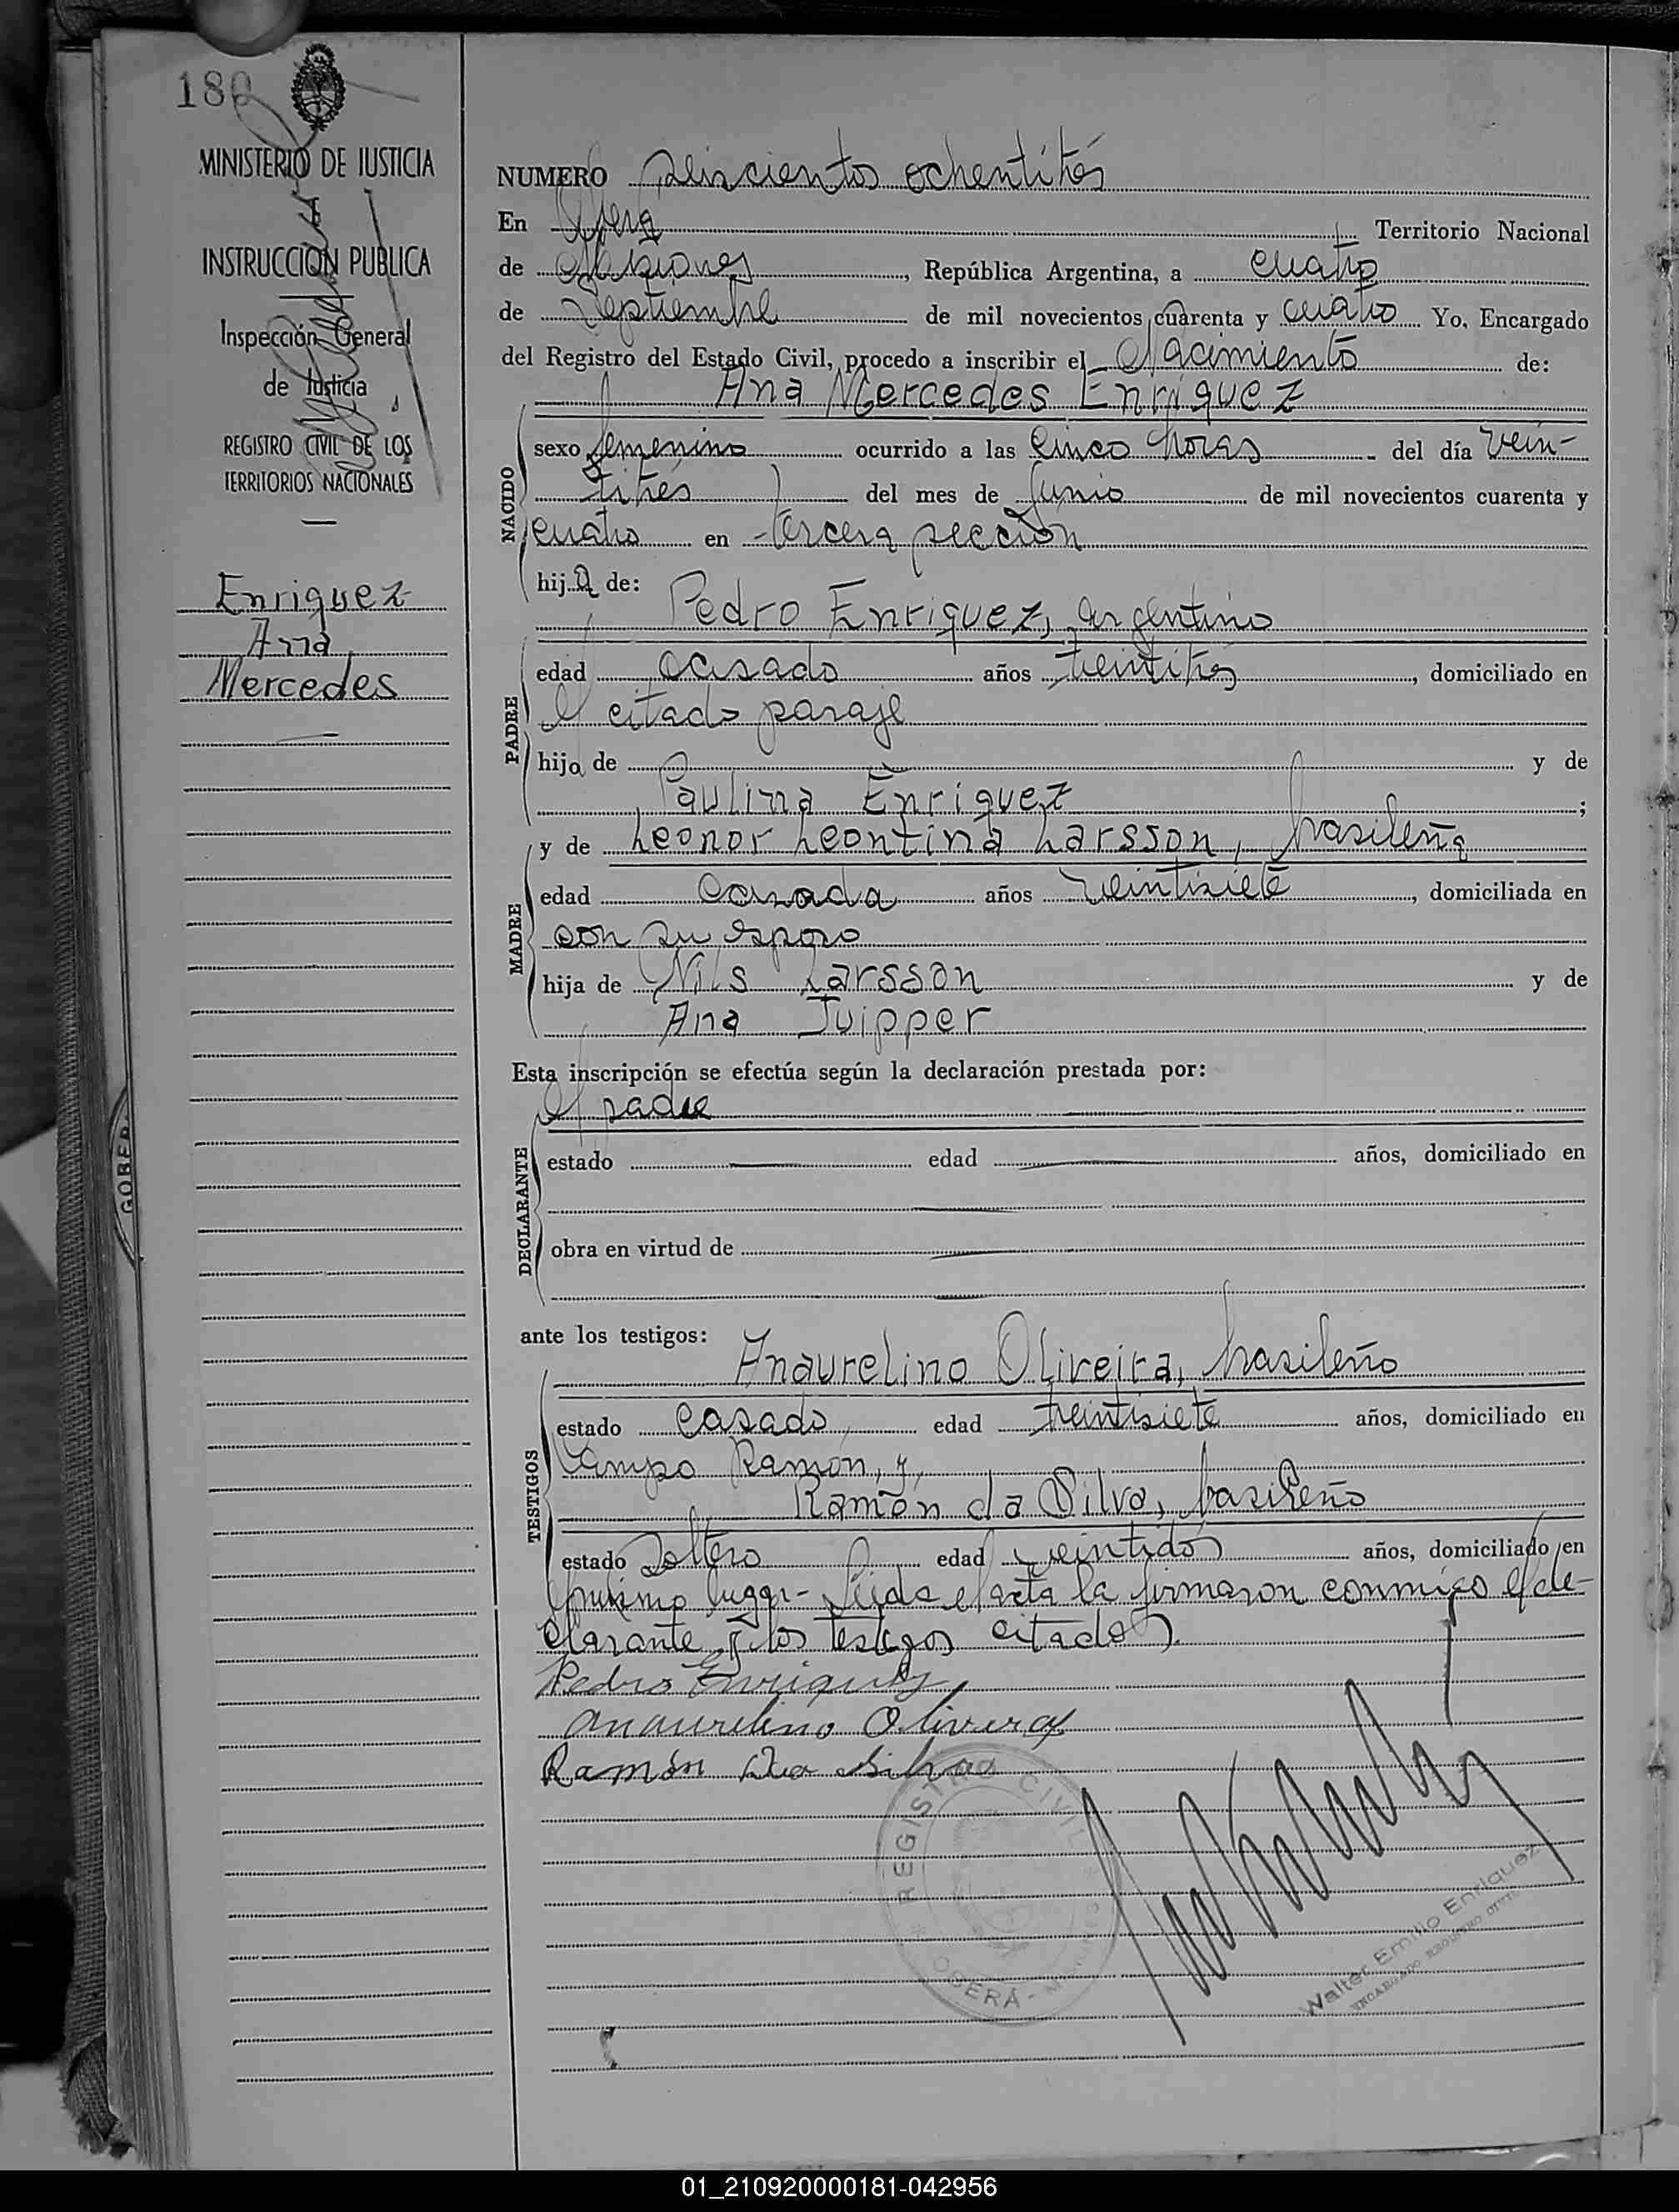 180
MINISTERIO DE JUSTICIA
INSTRUCCION PUBLICA
Inspección General
de Justicia
REGISTRO CIVIL DE LOS
TERRITORIOS NACIONALES
Enriquez
Ana
Mercedes
NUMERO Seiscientos ochentitrés
En Oberá Territorio Nacional
de Misiones, República Argentina, a cuatro
de Septiembre de mil novecientos cuarenta y cuatro Yo, Encargado
del Registro del Estado Civil, procedo a inscribir el Nacimiento de:
Ana Mercedes Enriquez
NACIDO
sexo femenino ocurrido a las cinco horas del día vein-
titrés del mes de Junio de mil novecientos cuarenta y
cuatro en tercera sección
hija de:
Pedro Enriquez, argentino
PADRE
edad casado años treintitrés, domiciliado en
el citado paraje
hijo de y de
Paulina Enriquez;
MADRE
y de Leonor Leontina Larsson, brasileña
edad casada años veintisiete, domiciliada en
con su esposo
hija de Nils Larsson y de
Ana Juipper
Esta inscripción se efectúa según la declaración prestada por:
el padre
DECLARANTE
estado edad años, domiciliado en
obra en virtud de
ante los testigos:
Anaurelino Oliveira, brasileño
TESTIGOS
estado casado, edad treintisiete años, domiciliado en
Campo Ramón, y,
Ramón da Silva, brasileño
estado soltero edad veintidós años, domiciliado en
mismo lugar- Leída el acta la firmaron conmigo el de-
clarante y los testigos citados.
Pedro Enriquez
Anaurelino Olivera
Ramón Da Silva
REGISTRO CIVIL
OBERÁ -
Walter Emilio Enriquez
ENCARGADO REGISTRO CIVIL
GOBER
01_210920000181-042956